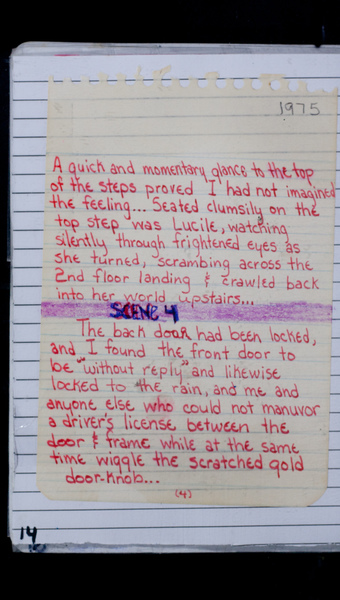 1975
A quick and momentary glance to the top
of the steps proved I had not imagined
the feeling... Seated clumsily on the
top step was Lucile, watching
silently through frightened eyes as
she turned, scrambing across the
2nd floor landing & crawled back
into her world upstairs...
SCENE 4
The back door had been locked,
and I found the front door to
be "without reply" and likewise
locked to the rain, and me and
anyone else who could not manuvor
a driver's license between the
door & frame while at the same
time wiggle the scratched gold
door-knob...
(4)
14